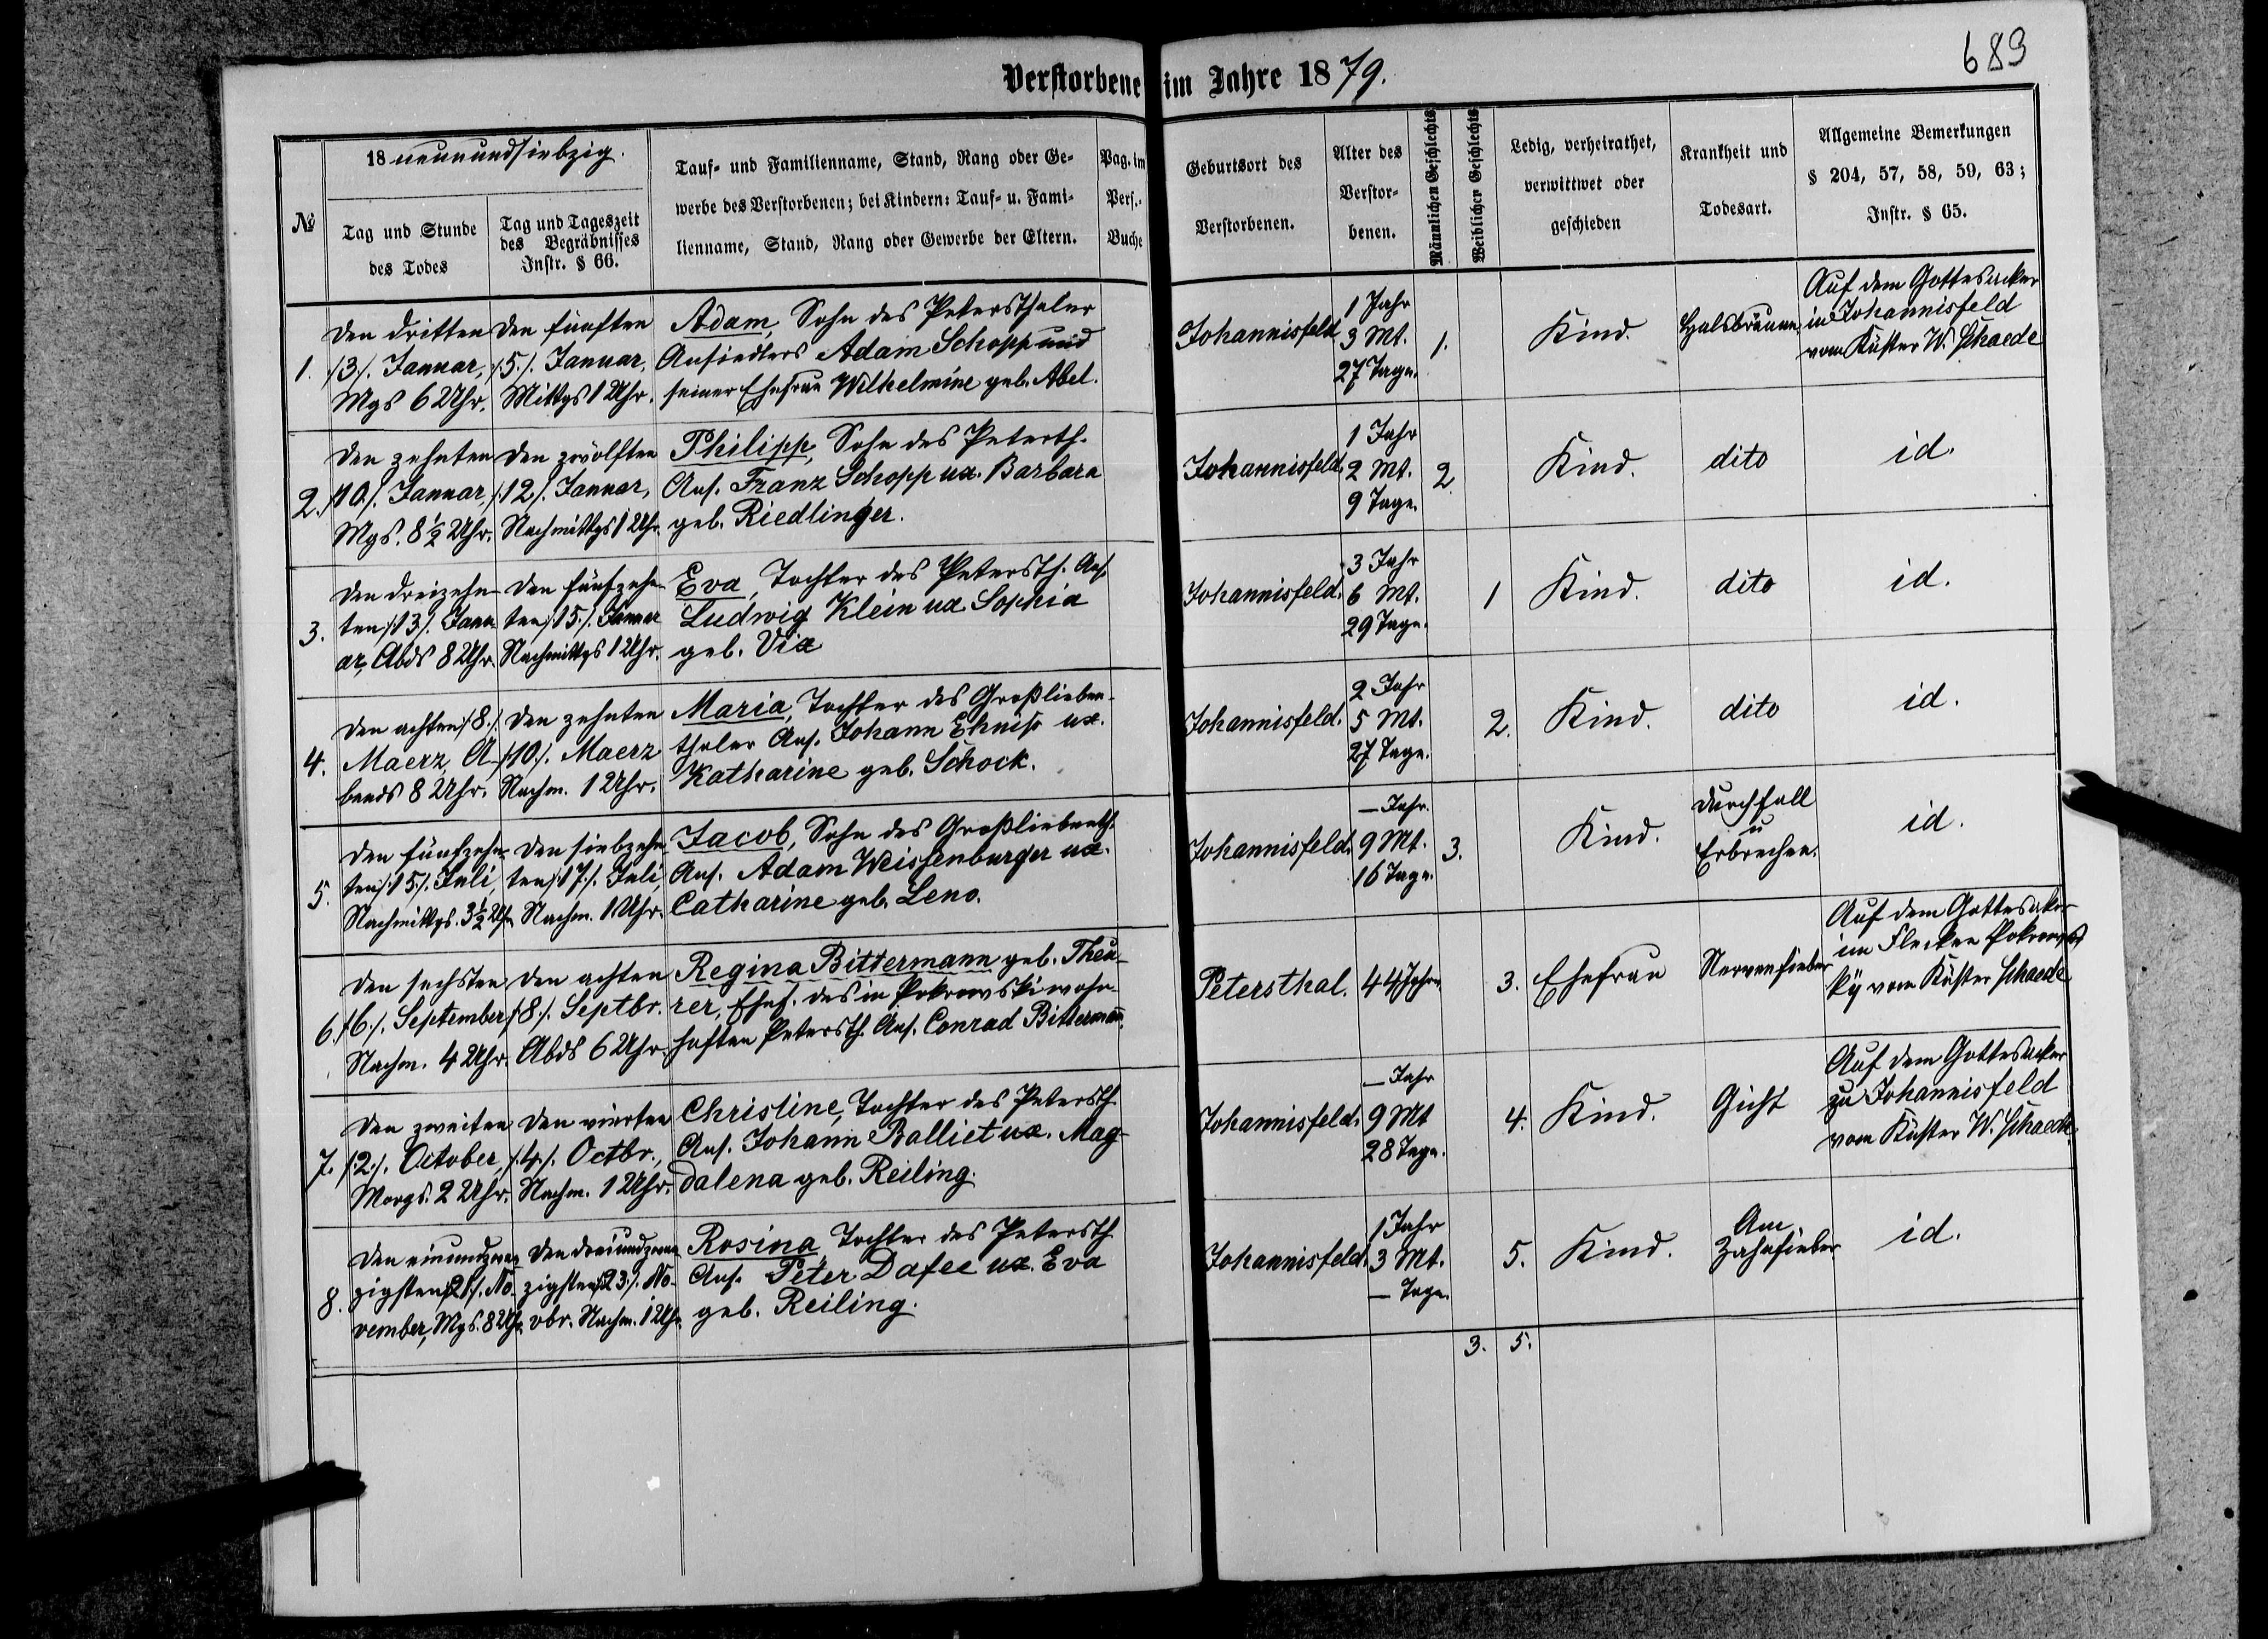 689
Verstorbene im Jahre 1879.
№
18 neunundsiebzig.
Tag und Stunde
des Todes
Tag und Tageszeit
des Begräbnisses
Instr. § 66.
Tauf- und Familienname, Stand, Rang oder Ge-
werbe des Verstorbenen; bei Kindern: Tauf- u. Fami-
lienname, Stand, Rang oder Gewerbe der Eltern.
Pag. im
Pers.-
Buche
Geburtsort des
Verstorbenen.
Alter des
Verstor-
benen.
Männlichen Geschlechts
Weiblichen Geschlechts
Ledig, verheirathet,
verwittwet oder
geschieden
Krankheit und
Todesart.
Allgemeine Bemerkungen
§ 204, 57, 58, 59, 63;
Instr. § 65.
1.
Den dritten
/3/. Januar,
Mgs 6 Uhr.
Den fünften
/5/. Januar,
Mittgs 1 Uhr.
Adam, Sohn des Petersthaler
Ansiedlers Adam Schopp und
seiner Ehefrau Wilhelmine geb. Abel.
Johannisfeld
1 Jahr
3 Mt.
27 Tage.
1.
Kind.
Halsbräune
Auf dem Gottesacker
in Johannisfeld
vom Küster W. Schaede
2.
Den zehnten
/10/. Januar,
Mgs. 8½ Uhr.
Den zwölften
/12/. Januar,
Nachmittgs 1 Uhr.
Philipp, Sohn des Petersth.
Ans. Franz Schopp ux. Barbara
geb. Riedlinger.
Johannisfeld.
1 Jahr
2 Mt.
9 Tage.
2.
Kind.
dito
id.
3.
Den dreizehn-
ten /13/. Janu
ar, Abds 8 Uhr.
Den fünfzehn-
ten /15/. Januar
Nachmittgs 1 Uhr.
Eva, Tochter des Petersth. Ans.
Ludwig Klein ux. Sophia
geb. Vix
Johannisfeld.
3 Jahr
6 Mt.
29 Tage.
1
Kind.
dito
id.
4.
Den achten /8/.
Maerz, A-
bends 8 Uhr.
Den zehnten
/10/. Maerz
Nachm. 1 Uhr.
Maria, Tochter des Großlieben-
thaler Ans. Johann Ehniß ux.
Katharine geb. Schock.
Johannisfeld.
2 Jahr
5 Mt.
27 Tage.
2.
Kind.
dito
id.
5.
Den fünfzehn-
ten /15/. Juli,
Nachmittgs. 3½ Uhr
Den siebzehn-
ten /17/. Juli,
Nachm. 1 Uhr.
Jacob, Sohn des Großliebenth.
Ans. Adam Weissenburger ux.
Catharine geb. Leno.
Johannisfeld.
— Jahr.
9 Mt.
16 Tage.
3.
Kind.
Durchfall
u
Erbrechen.
id.
6.
Den sechsten
/6/. September
Nachm. 4 Uhr.
Den achten
/8/. Septbr.
Abds 6 Uhr.
Regina Bittermann geb. Theu-
rer, Ehef. des in Pokrowski wohn-
haften Petersth. Ans. Conrad Bittermann.
Petersthal.
44 Jahre.
3.
Ehefrau
Nervenfieber
Auf dem Gottesaker
im Flecken Pokrows
ky vom Küster Schaede
7.
Den zweiten
/2/. October,
Morgs. 2 Uhr.
Den vierten
/4/. Octbr.,
Nachm. 1 Uhr.
Christine, Tochter des Petersth
Ans. Johann Balliet ux. Mag-
dalena geb. Reiling.
Johannisfeld.
— Jahr
9 Mt
28 Tage.
4.
Kind.
Gicht
Auf dem Gottesacker
zu Johannisfeld
vom Küster W. Schaede
8.
Den einundzwan
zigsten /21/. No-
vember, Mgs. 8 Uhr.
Den dreiundzwan
zigsten /23/. No-
vbr. Nachm. 1 Uhr.
Rosina, Tochter des Petersth
Ans. Peter Dafee ux. Eva
geb. Reiling.
Johannisfeld.
1 Jahr
3 Mt.
— Tage.
5.
Kind.
Am
Zahnfieber
id.
3. 5.